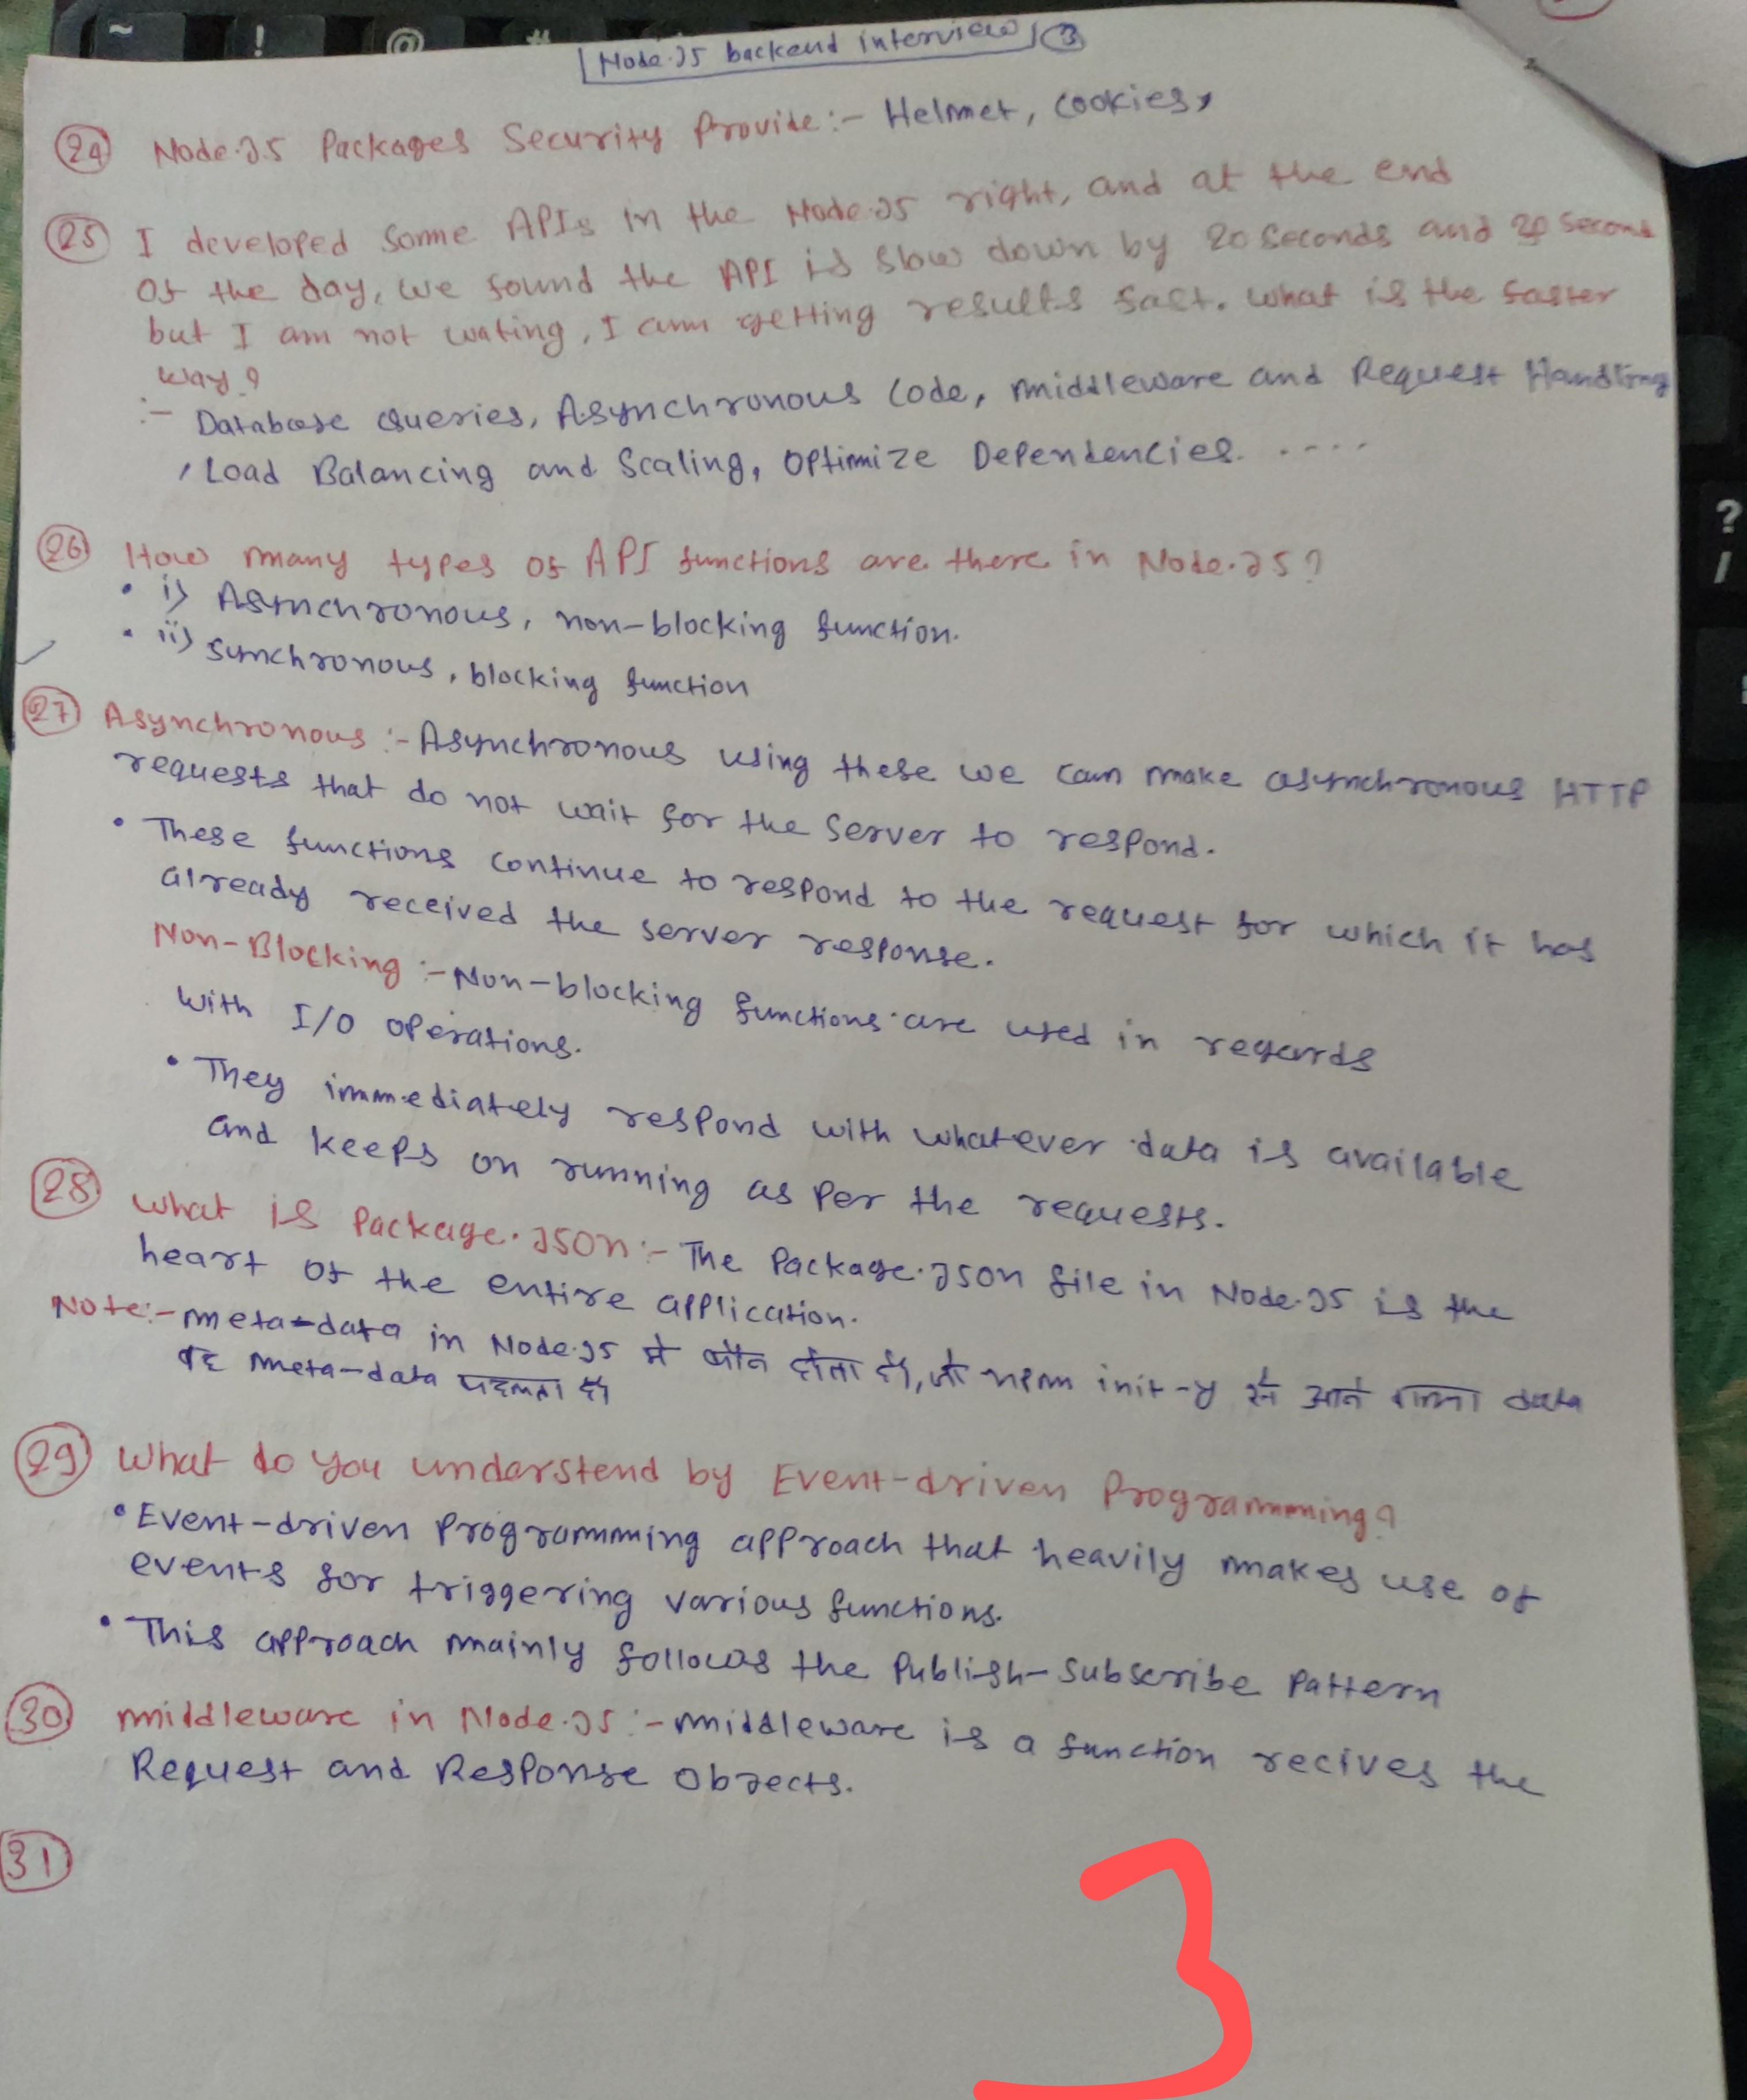 Node.JS backend interview 3
24 Node.JS Packages Security Provide:- Helmet, cookies,
25 I developed some APIs in the Node.JS right, and at the end
of the day, we found the API is slow down by 20 seconds and 20 second
but I am not wating, I am getting results fast. what is the faster
way?
:- Database Queries, Asynchronous Code, middleware and Request Handling
, Load Balancing and Scaling, Optimize Dependencies. ....
26 How many types of API functions are there in Node.JS?
• i) Asynchronous, non-blocking function.
• ii) Synchronous, blocking function
27 Asynchronous :- Asynchronous using these we can make asynchronous HTTP
requests that do not wait for the server to respond.
• These functions continue to respond to the request for which it has
already received the server response.
Non-Blocking :- Non-blocking functions are used in regards
with I/O operations.
• They immediately respond with whatever data is available
and keeps on running as per the requests.
28 what is Package.JSON :- The Package.JSON file in Node.JS is the
heart of the entire application.
Note:- meta-data in Node.JS मे कौन होता है, जो npm init -y से आने वाला data
वह meta-data है
29 What do you understend by Event-driven Programmming?
• Event-driven Programmming approach that heavily makes use of
events for triggering various functions.
• This approach mainly follows the Publish-Subscribe Pattern
30 middleware in Node.JS :- middleware is a function recives the
Request and Response Objects.
31
3
~ ! @ #
? /